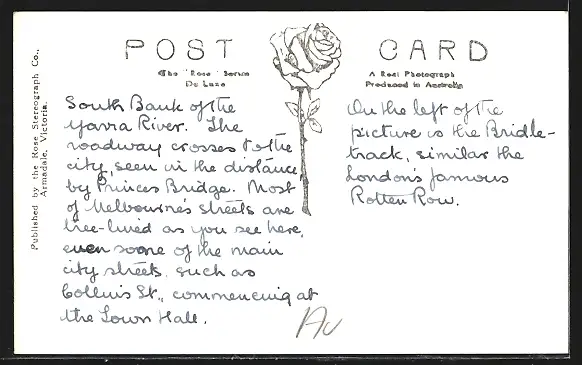 POST CARD
The "Rose" Series
De Luxe
A Real Photograph
Produced in Australia
Published by the Rose Stereograph Co.,
Armadale, Victoria.
South Bank of the
Yarra River. The
roadway crosses to the
city, seen in the distance,
by Princes Bridge. Most
of Melbourne's streets are
tree-lined as you see here,
even some of the main
city streets, such as
Collins St., commencing at
the Town Hall.
On the left of the
picture is the Bridle-
track, similar the
London's famous
Rotten Row.